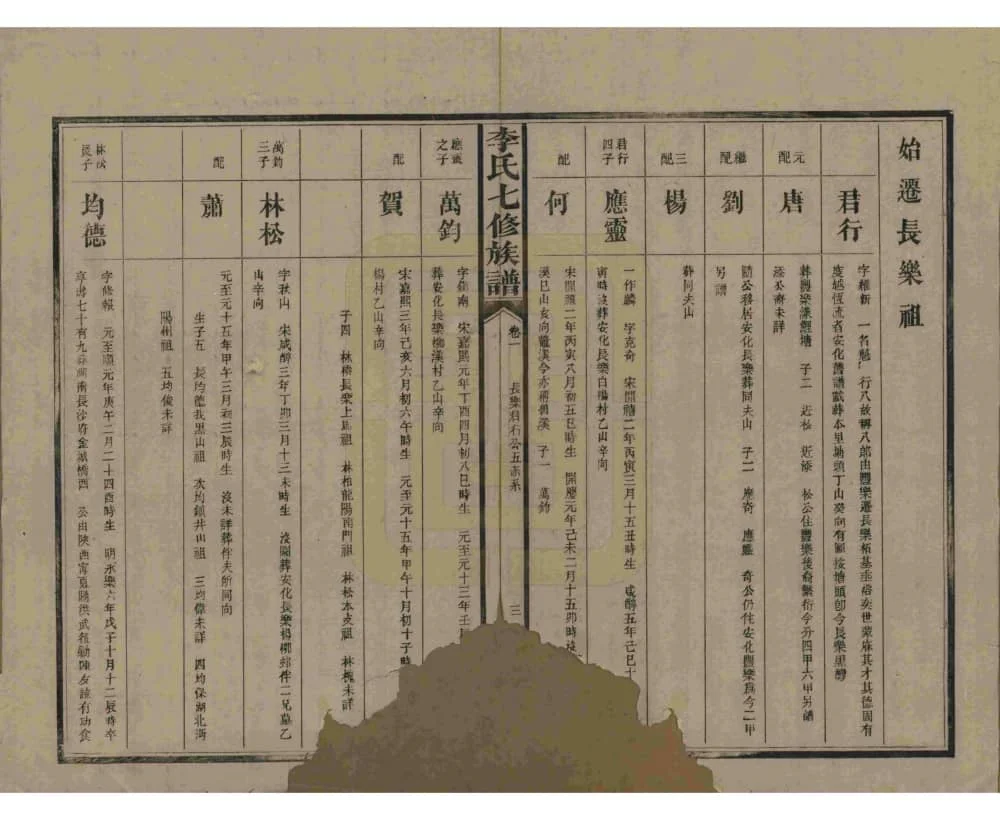 始遷長樂祖
君行
字維新 一名魁 行八故稱八郎由豐樂遷長樂柘基垂裕奕世蒙庥其才其德固有
度越恆流者安化舊譜載葬本里塘頭丁山癸向有圖按塘頭卽今長樂黑灣
元配
唐
子二 近松 近漆 松公住豐樂後裔繁衍今分四甲六甲另譜
漆公裔未詳
繼配
劉
隨公移居安化長樂葬同夫山 子二 應奇 應靈 奇公仍住安化豐樂爲今二甲
另譜
三配
楊
葬同夫山
君行四子
應靈
一作麟 字克奇 宋開禧二年丙寅三月十五丑時生 咸醇五年己巳十
寅時沒葬安化長樂白楊村乙山辛向
配
何
宋開禧二年丙寅八月初五巳時生 開慶元年己未二月十五卯時沒
溪巳山亥向 子一 萬鈞
李氏七修族譜
卷一
長樂君行公五亲系
三
應靈之子
萬鈞
字鎮南 宋嘉熙元年丁酉四月初八巳時生 元至元十三年壬
葬安化長樂楊溪村乙山辛向
配
賀
宋嘉熙三年己亥六月初六午時生 元至元十五年甲午十月初十子時
楊村乙山辛向
子四 林樑長樂上邑祖 林柏龍陽南門祖 林松本支祖 林槐未詳
萬鈞三子
林松
字秋山 宋咸醇三年丁卯三月十三未時生 沒闕葬安化長樂楊柳邨伴二兄墓乙
山辛向
配
蕭
元至元十五年甲午三月初三辰時生 沒未詳葬伴夫所同向
生子五 長均德我黑山祖 次均鎮井山祖 三均偉未詳 四均保湖北沔
陽州祖 五均俊未詳
林松長子
均德
字修報 元至順元年庚午二月二十四酉時生 明永樂六年戊子十月十二辰時卒
享壽七十有九葬湖南長沙府金滅橋西 公由陝西寧夏隨洪武征勦陳友諒有功食